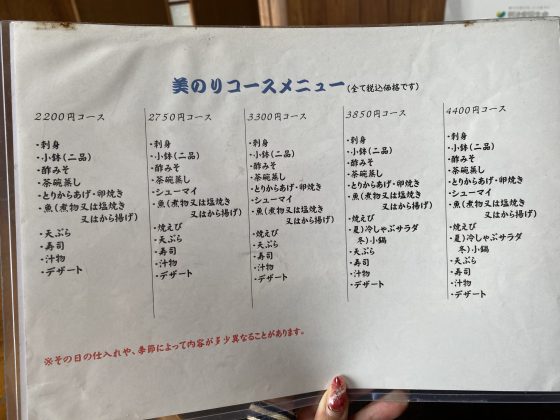 美のりコースメニュー(全て税込価格です)
2200円コース
・刺身
・小鉢(二品)
・酢みそ
・茶碗蒸し
・とりからあげ・卵焼き
・魚(煮物又は塩焼き
又はから揚げ)
・天ぷら
・寿司
・汁物
・デザート
2750円コース
・刺身
・小鉢(二品)
・酢みそ
・茶碗蒸し
・シューマイ
・魚(煮物又は塩焼き
又はから揚げ)
・焼えび
・天ぷら
・寿司
・汁物
・デザート
3300円コース
・刺身
・小鉢(二品)
・酢みそ
・茶碗蒸し
・とりからあげ・卵焼き
・シューマイ
・魚(煮物又は塩焼き
又はから揚げ)
・焼えび
・天ぷら
・寿司
・汁物
・デザート
3850円コース
・刺身
・小鉢(二品)
・酢みそ
・茶碗蒸し
・とりからあげ・卵焼き
・魚(煮物又は塩焼き
又はから揚げ)
・焼えび
・夏)冷しゃぶサラダ
冬)小鍋
・天ぷら
・寿司
・汁物
・デザート
4400円コース
・刺身
・小鉢(二品)
・酢みそ
・茶碗蒸し
・とりからあげ・卵焼き
・シューマイ
・魚(煮物又は塩焼き
又はから揚げ)
・焼えび
・夏)冷しゃぶサラダ
冬)小鍋
・天ぷら
・寿司
・汁物
・デザート
※その日の仕入れや、季節によって内容が多少異なることがあります。